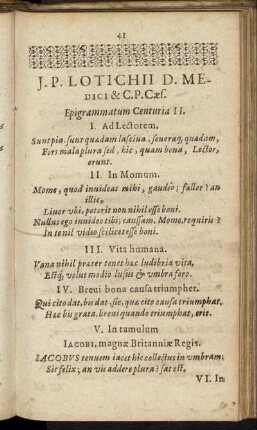 41
J. P. LOTICHII D. ME-
DICI & C. P. Cæs.
Epigrammatum Centuria II.
I. Ad Lectorem.
Sunt pia, sunt quædam lasciua, seueraq; quædam,
Fors mala plura sed, hic, quam bona, Lector,
erunt.
II. In Momum.
Mome, quod inuideas mihi, gaudeo; fallor? an
illic,
Liuor vbi, poterit non nihil esse boni.
Nullus ego inuideo tibi; causam, Mome, requiris?
In te nil video scilicet esse boni.
III. Vita humana.
Vana nihil præter tenet hæc ludibria vita,
Estq; velut medio lusus & vmbra foro.
IV. Breui bona causa triumphet.
Qui cito dat, bis dat: sic, qua cito causa triumphat,
Hæc bis grata, breui quando triumphat, erit.
V. In tumulum
IACOBI, magnæ Britanniæ Regis.
IACOBVS tenuem iacet hic collectus in vmbram;
Sit felix; an vis addere plura? sat est.
VI. In